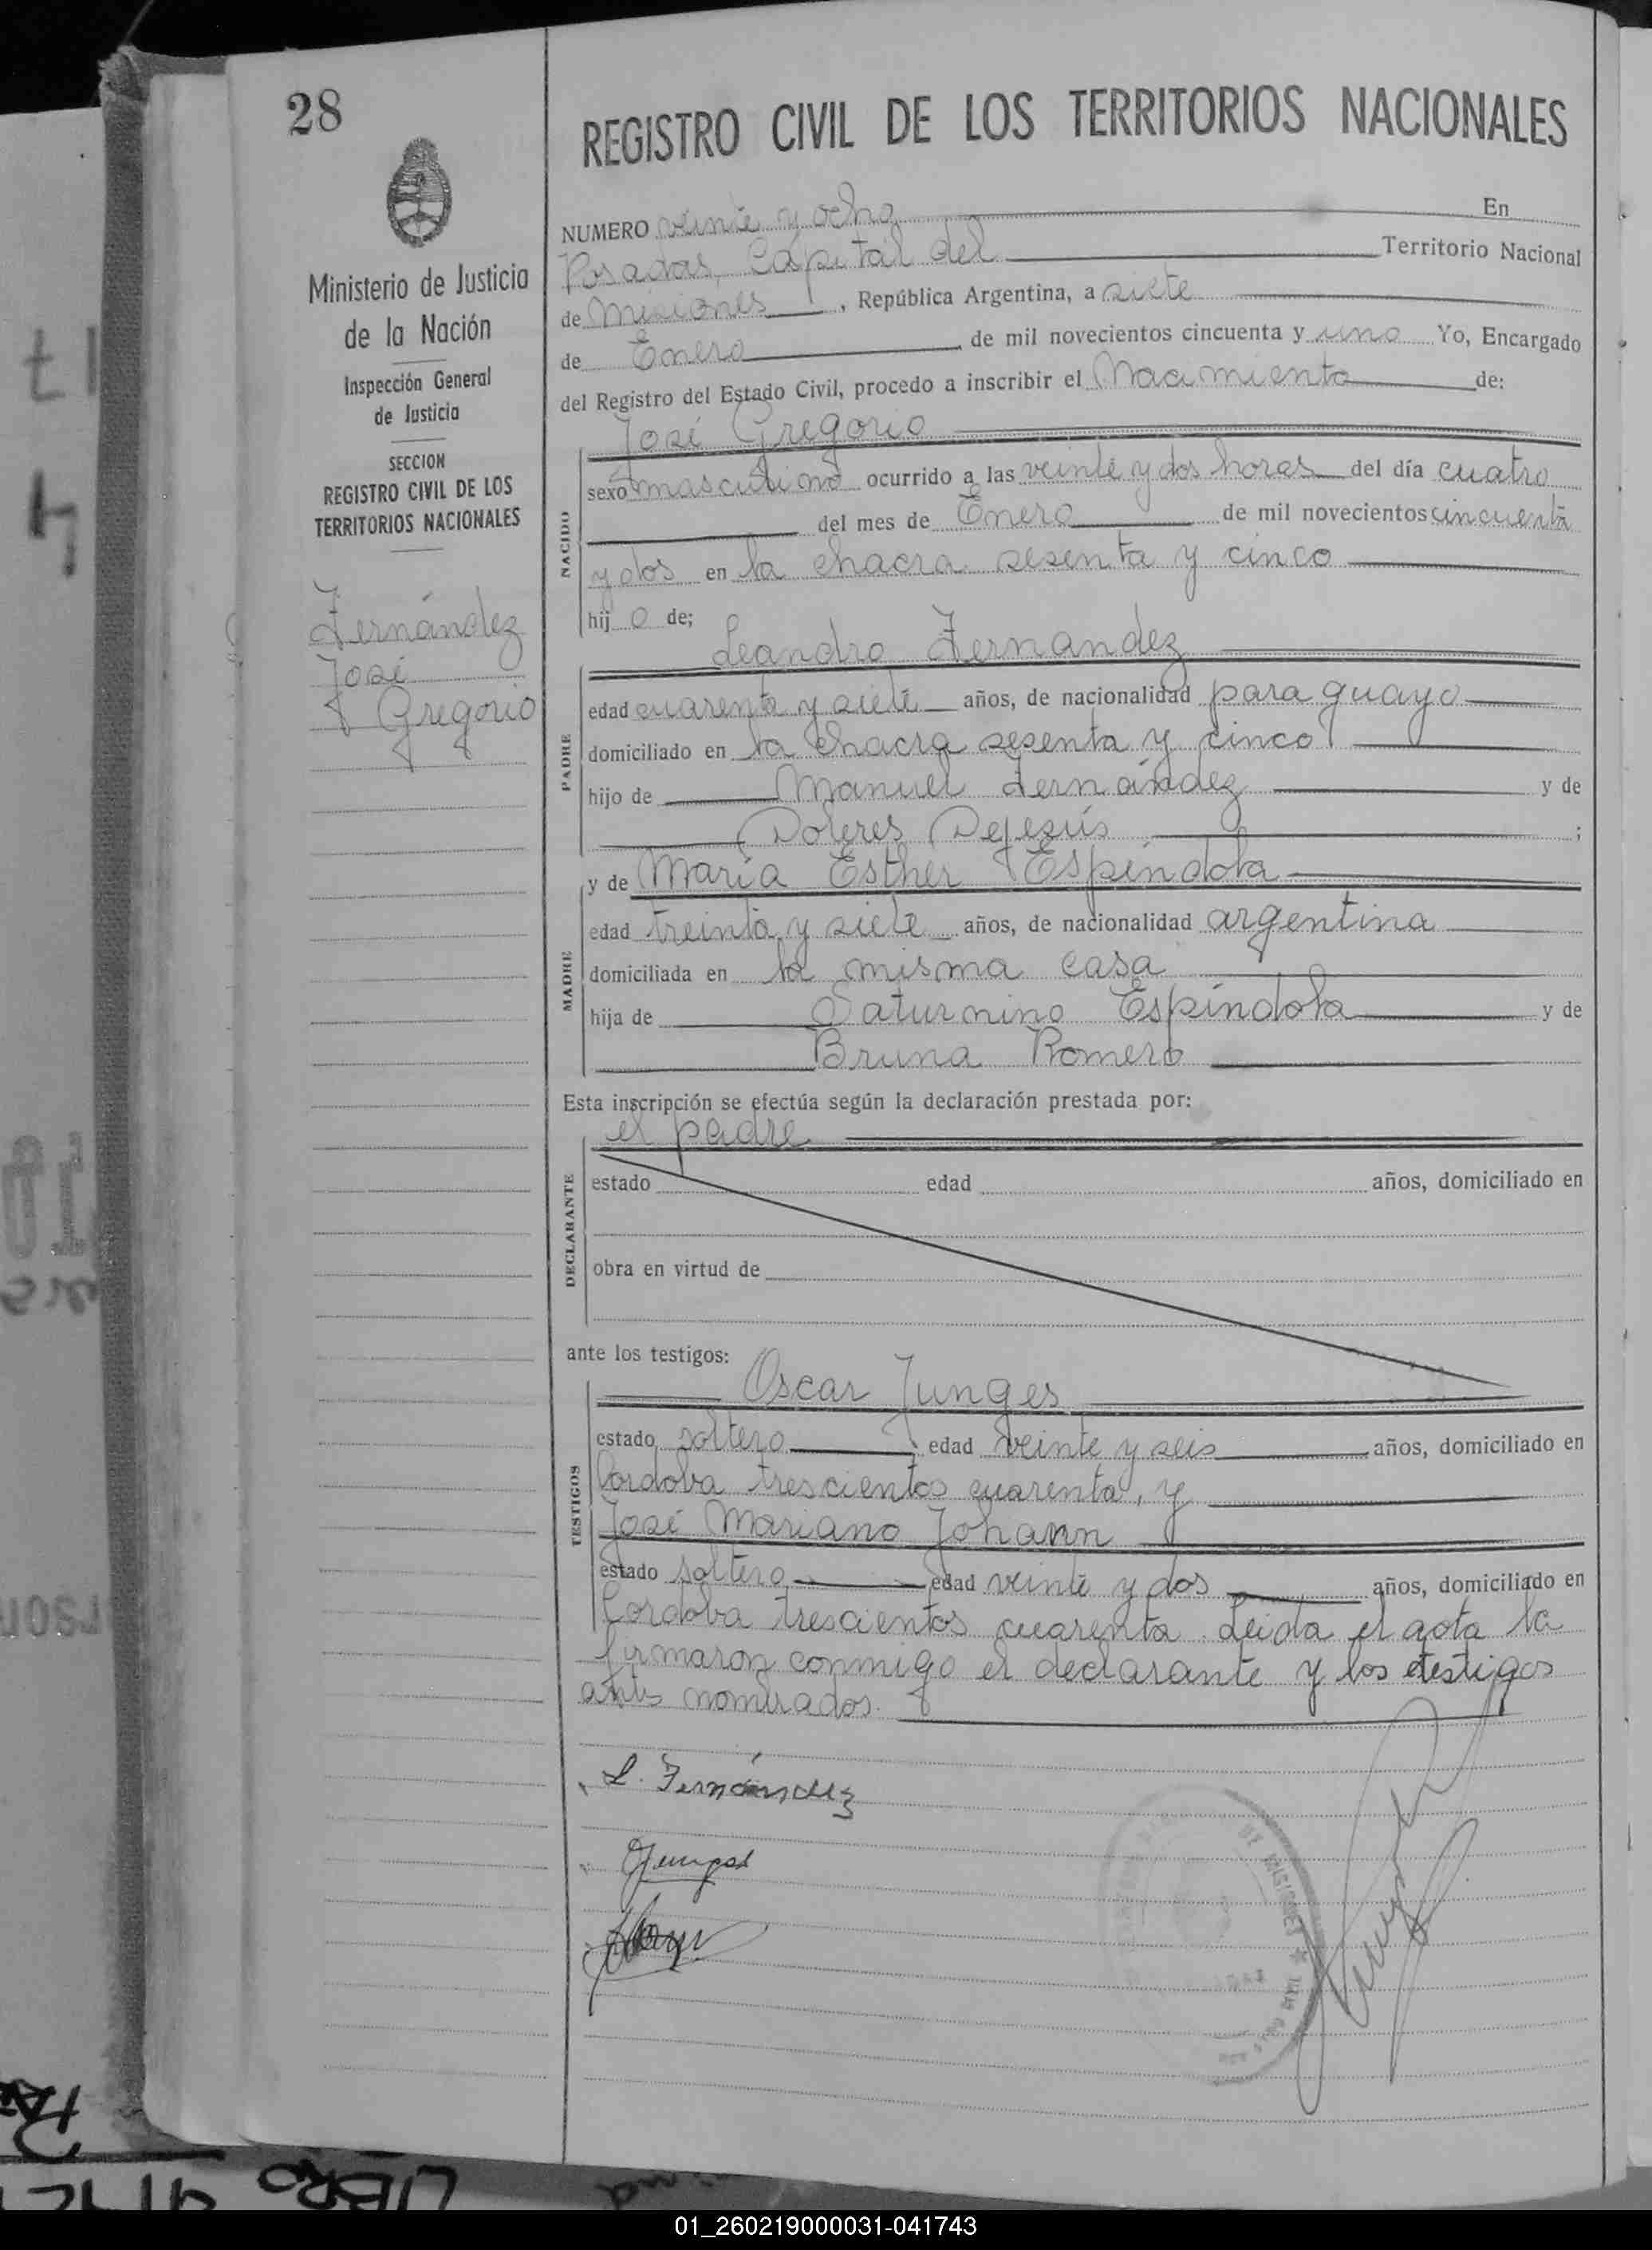 28
REGISTRO CIVIL DE LOS TERRITORIOS NACIONALES
Ministerio de Justicia
de la Nación
Inspección General
de Justicia
SECCION
REGISTRO CIVIL DE LOS
TERRITORIOS NACIONALES
Fernández
José
Gregorio
NUMERO veinte y ocho En
Posadas, Capital del Territorio Nacional
de Misiones, República Argentina, a siete
de Enero de mil novecientos cincuenta y uno Yo, Encargado
del Registro del Estado Civil, procedo a inscribir el Nacimiento de:
José Gregorio
NACIDO
sexo masculino ocurrido a las veinte y dos horas del día cuatro
del mes de Enero de mil novecientos cincuenta
y dos en la chacra sesenta y cinco
hijo de;
Leandro Fernandez
PADRE
edad cuarenta y siete años, de nacionalidad paraguayo
domiciliado en la chacra sesenta y cinco
hijo de Manuel Fernández y de
Dolores Dejesús ;
y de María Esther Espíndola
MADRE
edad treinta y siete años, de nacionalidad argentina
domiciliada en la misma casa
hija de Saturnino Espíndola y de
Bruna Romero
Esta inscripción se efectúa según la declaración prestada por:
el padre
DECLARANTE
estado edad años, domiciliado en
obra en virtud de
ante los testigos:
Oscar Junges
TESTIGOS
estado soltero edad veinte y seis años, domiciliado en
Cordoba trescientos cuarenta, y
José Mariano Johann
estado soltero edad veinte y dos años, domiciliado en
Cordoba trescientos cuarenta. Leida el acta la
firmaron conmigo el declarante y los testigos
antes nombrados.
L. Fernández
OJunges
DE MISIONES
LIBRO
01_260219000031-041743